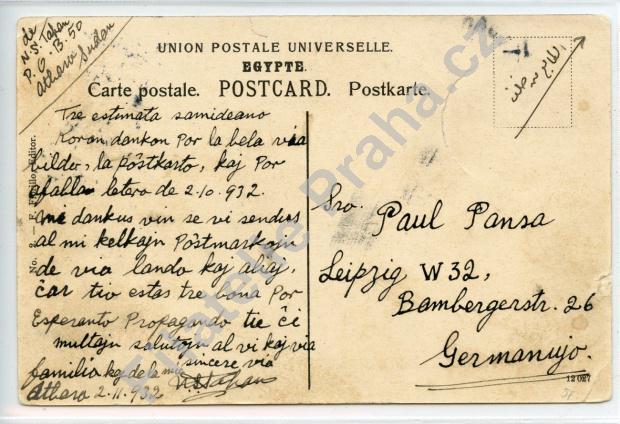 de
N.S. Tapan
P.O.B. 50
Atbara Sudan
UNION POSTALE UNIVERSELLE.
EGYPTE.
Carte postale. POSTCARD. Postkarte.
Tre estimata samideano
Koran dankon por la bela via
bildo, la pôstkarto, kaj por
letero de 2.10.932.
mi dankus vin se vi sendus
al mi kelkajn Pôstmarkojn
de via lando kaj aliaj,
ĉar tio estas tre bona por
Esperanto Propagando tie ĉi
multajn salutojn al vi kaj via
familio kaj de la mia sincere via
Atbara 2.11.932
Sro. Paul Pansa
Leipzig W 32,
Bambergerstr. 26
Germanujo.
12 027
Filatelie Praha.cz